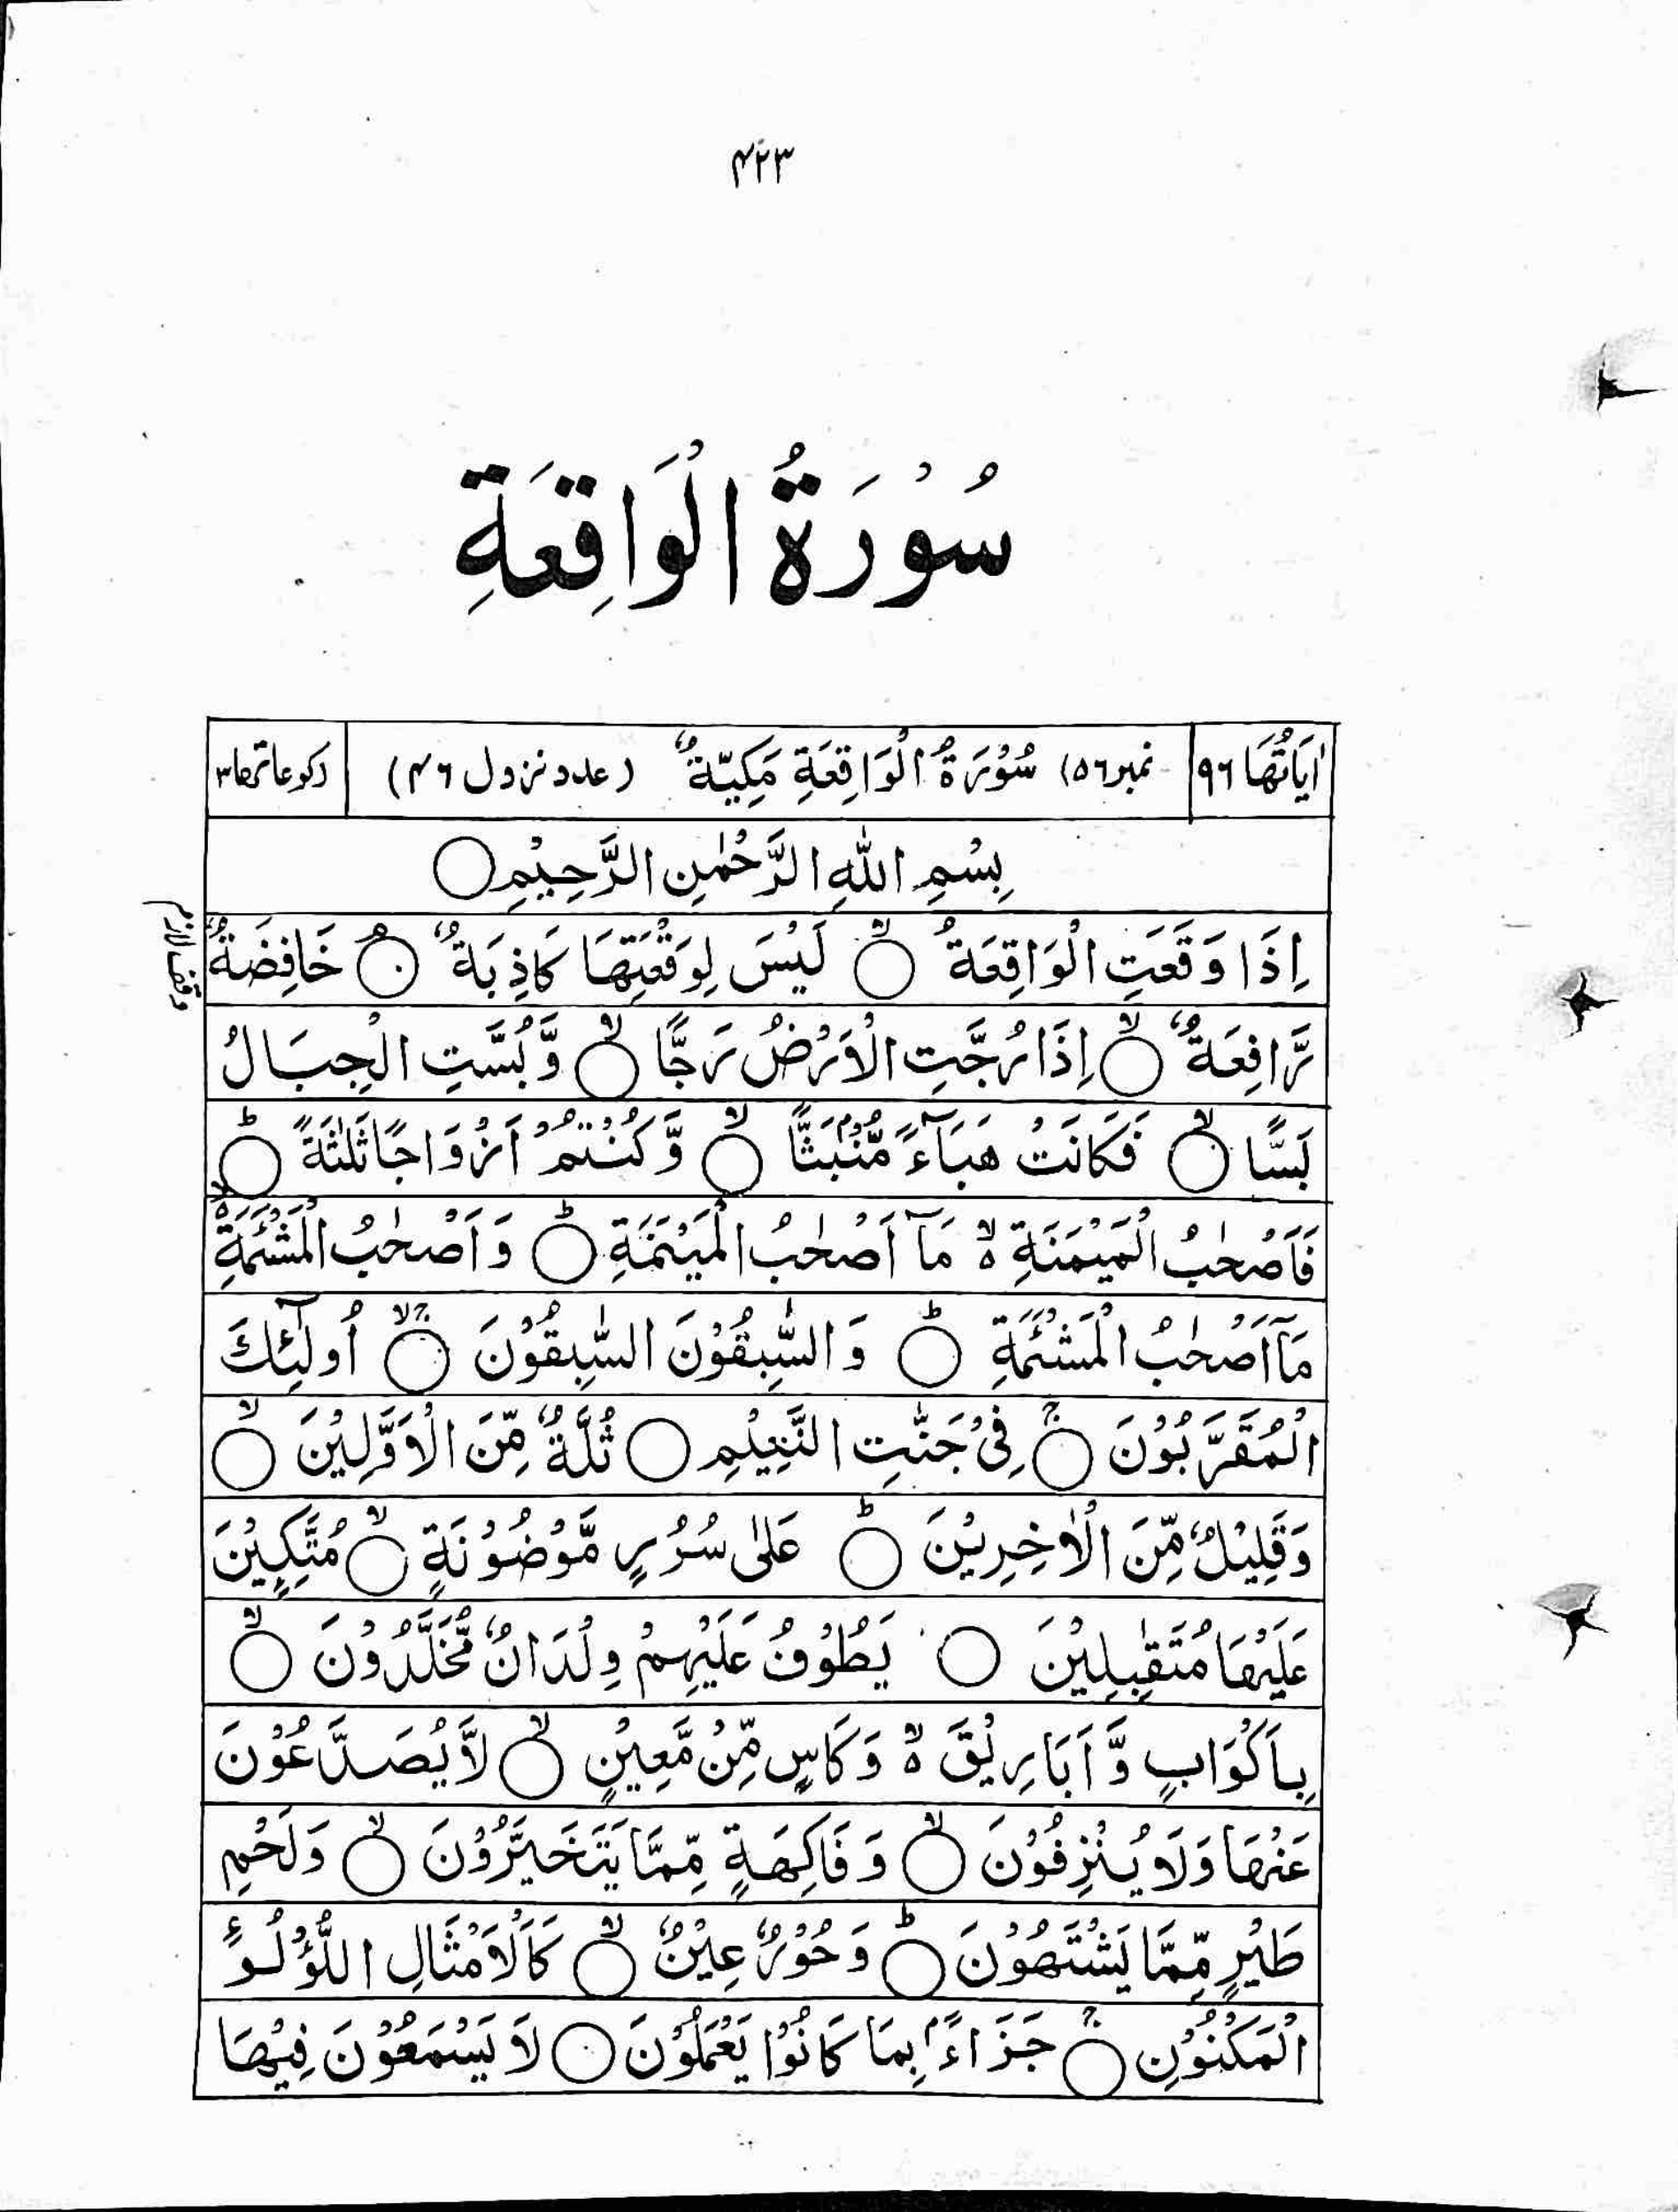 ۴۲۳
سُوْرَةُ الْوَاقِعَةِ
اٰيَاتُهَا ٩٦ نمبر ٥٦) سُوْرَةُ الْوَاقِعَةِ مَكِيَّةٌ (عدد نزول ۴٦) رکوعاتھا ٣
بِسْمِ اللّٰهِ الرَّحْمٰنِ الرَّحِيْمِ ○
اِذَا وَقَعَتِ الْوَاقِعَةُ ○ۙ لَيْسَ لِوَقْعَتِهَا كَاذِبَةٌ ○ۘ خَافِضَةٌ
وقف لازم
رَّافِعَةٌ ○ۙ اِذَا رُجَّتِ الْاَرْضُ رَجًّا ○ۙ وَّبُسَّتِ الْجِبَالُ
بَسًّا ○ۙ فَكَانَتْ هَبَآءً مُّنْۢبَثًّا ○ۙ وَّكُنْتُمْ اَزْوَاجًا ثَلٰثَةً ○ؕ
فَاَصْحٰبُ الْمَيْمَنَةِ ۙ۬ مَآ اَصْحٰبُ الْمَيْمَنَةِ ○ؕ وَاَصْحٰبُ الْمَشْئَمَةِ ۙ۬
مَآ اَصْحٰبُ الْمَشْئَمَةِ ○ؕ وَالسّٰبِقُوْنَ السّٰبِقُوْنَ ○ۚۙ اُولٰٓئِكَ
الْمُقَرَّبُوْنَ ○ۚ فِيْ جَنّٰتِ النَّعِيْمِ ○ ثُلَّةٌ مِّنَ الْاَوَّلِيْنَ ○ۙ
وَقَلِيْلٌ مِّنَ الْاٰخِرِيْنَ ○ؕ عَلٰى سُرُرٍ مَّوْضُوْنَةٍ ○ۙ مُتَّكِـِٕيْنَ
عَلَيْهَا مُتَقٰبِلِيْنَ ○ يَطُوْفُ عَلَيْهِمْ وِلْدَانٌ مُّخَلَّدُوْنَ ○ۙ
بِاَكْوَابٍ وَّاَبَارِيْقَ ۙ۬ وَكَاْسٍ مِّنْ مَّعِيْنٍ ○ۙ لَّا يُصَدَّعُوْنَ
عَنْهَا وَلَا يُنْزِفُوْنَ ○ۙ وَفَاكِهَةٍ مِّمَّا يَتَخَيَّرُوْنَ ○ۙ وَلَحْمِ
طَيْرٍ مِّمَّا يَشْتَهُوْنَ ○ؕ وَحُوْرٌ عِيْنٌ ○ۙ كَاَمْثَالِ اللُّؤْلُـوٴِ
الْمَكْنُوْنِ ○ۚ جَزَآءًۢ بِمَا كَانُوْا يَعْمَلُوْنَ ○ لَا يَسْمَعُوْنَ فِيْهَا